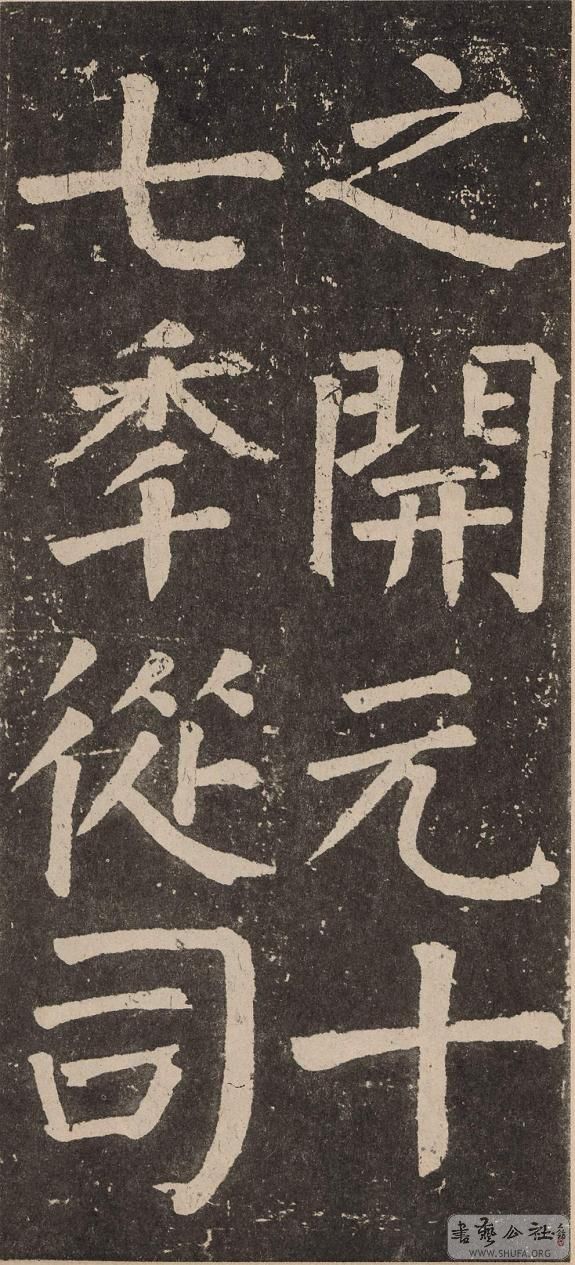 之開元十
七秊從司
書藝公社
WWW.SHUFA.ORG